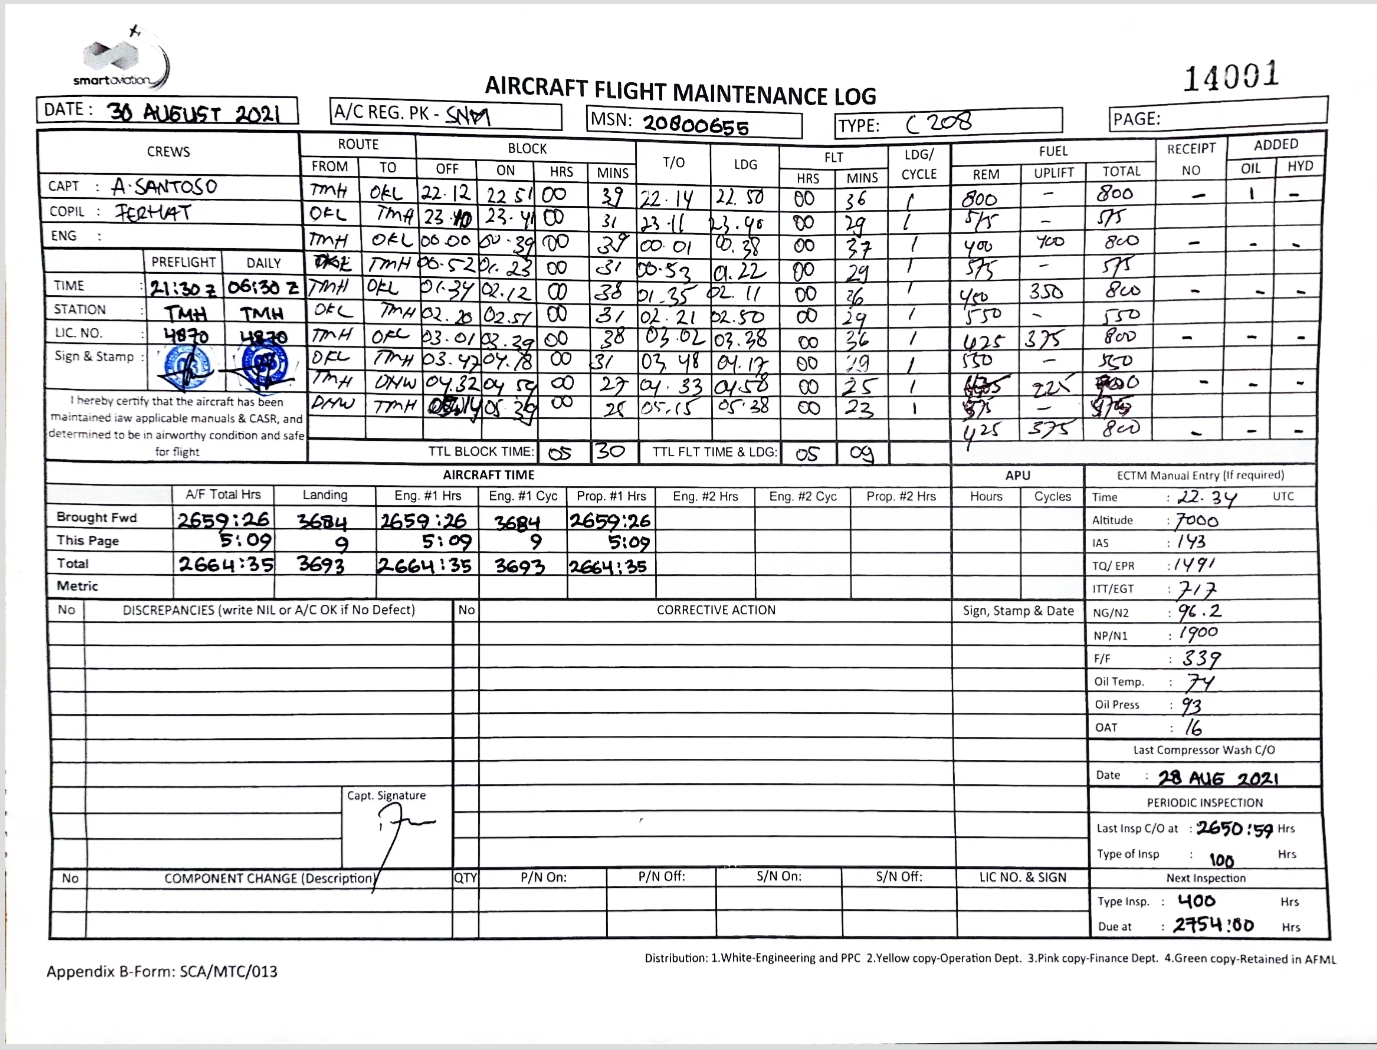 smartaviation
14001
AIRCRAFT FLIGHT MAINTENANCE LOG
DATE : 30 AUGUST 2021 A/C REG. PK - SNM MSN: 20800655 TYPE: C 208 PAGE:
CREWS ROUTE BLOCK T/O LDG FLT LDG/ CYCLE FUEL RECEIPT NO ADDED
FROM TO OFF ON HRS MINS HRS MINS REM UPLIFT TOTAL OIL HYD
CAPT : A. SANTOSO TMH OKL 22.12 22 51 00 39 22.14 22.50 00 36 1 800 - 800 - 1 -
COPIL : FERHAT OKL TMH 23.10 23.41 00 31 23.11 23.40 00 29 1 575 - 575
ENG : TMH OKL 00.00 00.39 00 39 00.01 00.38 00 37 1 400 400 800 - - -
PREFLIGHT DAILY TMH 00.52 01.23 00 31 00.53 01.22 00 29 1 575 - 575
TIME : 21:30 Z 06:30 Z TMH OKL 01.34 02.12 00 38 01.35 02.11 00 36 1 450 350 800 - - -
STATION : TMH TMH OKL TMH 02.20 02.51 00 31 02.21 02.50 00 29 1 550 - 550
LIC. NO. : 4870 4870 TMH OKL 03.01 03.39 00 38 03.02 03.38 00 36 1 425 375 800 - - -
Sign & Stamp : OKL TMH 03.47 04.18 00 31 03.48 04.17 00 29 1 550 - 550
TMH DHW 04.32 04 59 00 27 04.33 04.58 00 25 1 225 - - -
I hereby certify that the aircraft has been maintained iaw applicable manuals & CASR, and determined to be in airworthy condition and safe for flight
DHW TMH 05.39 00 25 05.15 05.38 00 23 1 -
425 375 800 - - -
TTL BLOCK TIME: 05 30 TTL FLT TIME & LDG: 05 09
AIRCRAFT TIME APU ECTM Manual Entry (If required)
A/F Total Hrs Landing Eng. #1 Hrs Eng. #1 Cyc Prop. #1 Hrs Eng. #2 Hrs Eng. #2 Cyc Prop. #2 Hrs Hours Cycles Time : 22.34 UTC
Brought Fwd 2659:26 3684 2659:26 3684 2659:26 Altitude : 7000
This Page 5:09 9 5:09 9 5:09 IAS : 143
Total 2664:35 3693 2664:35 3693 2664:35 TQ/ EPR : 1491
Metric ITT/EGT : 717
No DISCREPANCIES (write NIL or A/C OK if No Defect) No CORRECTIVE ACTION Sign, Stamp & Date NG/N2 : 96.2
NP/N1 : 1900
F/F : 339
Oil Temp. : 74
Oil Press : 93
OAT : 16
Last Compressor Wash C/O
Date : 28 AUG 2021
Capt. Signature
PERIODIC INSPECTION
Last Insp C/O at : 2650:59 Hrs
Type of Insp : 100 Hrs
No COMPONENT CHANGE (Description) QTY P/N On: P/N Off: S/N On: S/N Off: LIC NO. & SIGN Next Inspection
Type Insp. : 400 Hrs
Due at : 2754:00 Hrs
Distribution: 1.White-Engineering and PPC 2.Yellow copy-Operation Dept. 3.Pink copy-Finance Dept. 4.Green copy-Retained in AFML
Appendix B-Form: SCA/MTC/013